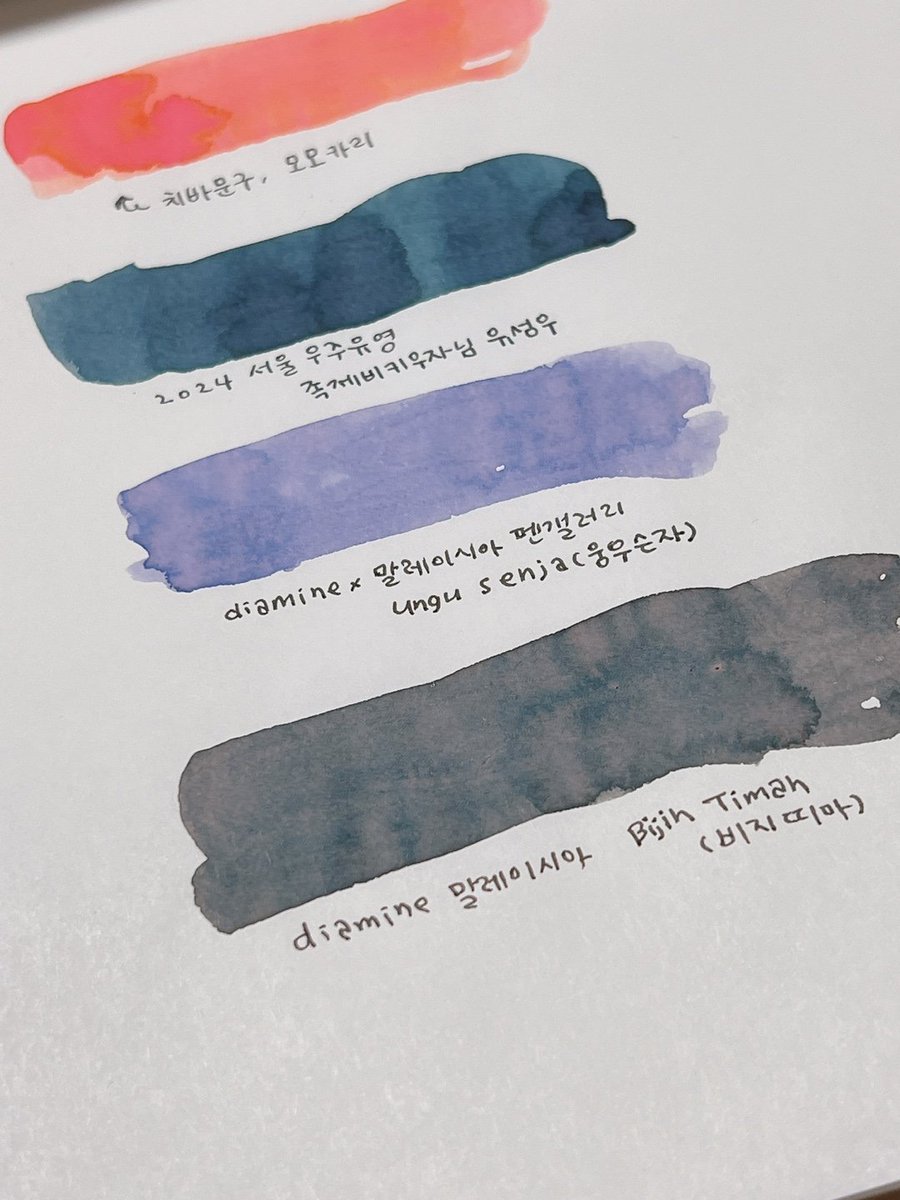 치바문구, 모모카리
2024 서울 우주유영
족제비키우자님 유성우
diamine x 말레이시아 펜갤러리
ungu senja(웅우슨자)
diamine 말레이시아 Bijih Timah
(비지띠마)